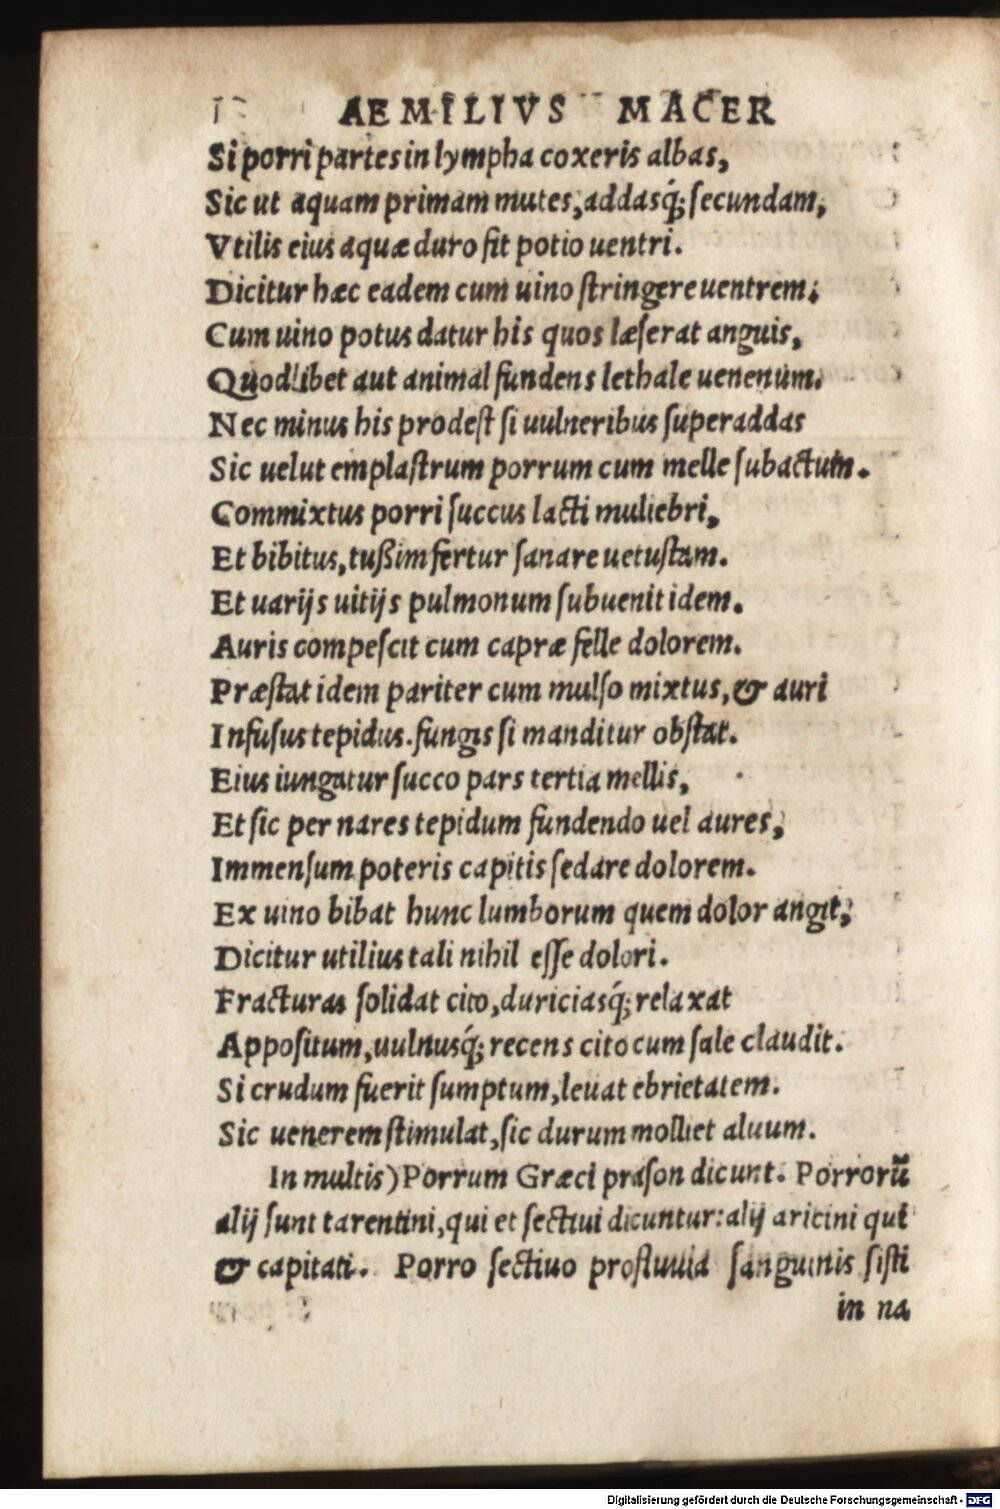 AEMILIVS MACER
Si porri partes in lympha coxeris albas,
Sic ut aquam primam mutes, addasq́; secundam,
Vtilis eius aquæ duro fit potio uentri.
Dicitur hæc eadem cum uino ſtringere uentrem;
Cum uino potus datur his quos læſerat anguis,
Quodlibet aut animal fundens lethale uenenum.
Nec minus his prodeſt ſi uulneribus ſuperaddas
Sic uelut emplaſtrum porrum cum melle ſubactum.
Commixtus porri ſuccus lacti muliebri,
Et bibitus, tußim fertur ſanare uetuſtam.
Et uarijs uitijs pulmonum ſubuenit idem.
Auris compeſcit cum capræ felle dolorem.
Præſtat idem pariter cum mulſo mixtus, & auri
Infuſus tepidus. fungis ſi manditur obſtat.
Eius iungatur ſucco pars tertia mellis,
Et ſic per nares tepidum fundendo uel aures,
Immenſum poteris capitis ſedare dolorem.
Ex uino bibat hunc lumborum quem dolor angit;
Dicitur utilius tali nihil eſſe dolori.
Fracturas ſolidat cito, duriciasq́; relaxat
Appoſitum, uulnusq́; recens cito cum ſale claudit.
Si crudum fuerit ſumptum, leuat ebrietatem.
Sic uenerem ſtimulat, ſic durum molliet aluum.
In multis) Porrum Græci praſon dicunt. Porrorū
alij ſunt tarentini, qui et ſectiui dicuntur: alij aricini qui
& capitati. Porro ſectiuo profluuia ſanguinis ſiſti
in na
Digitalisierung gefördert durch die Deutsche Forschungsgemeinschaft - DFG